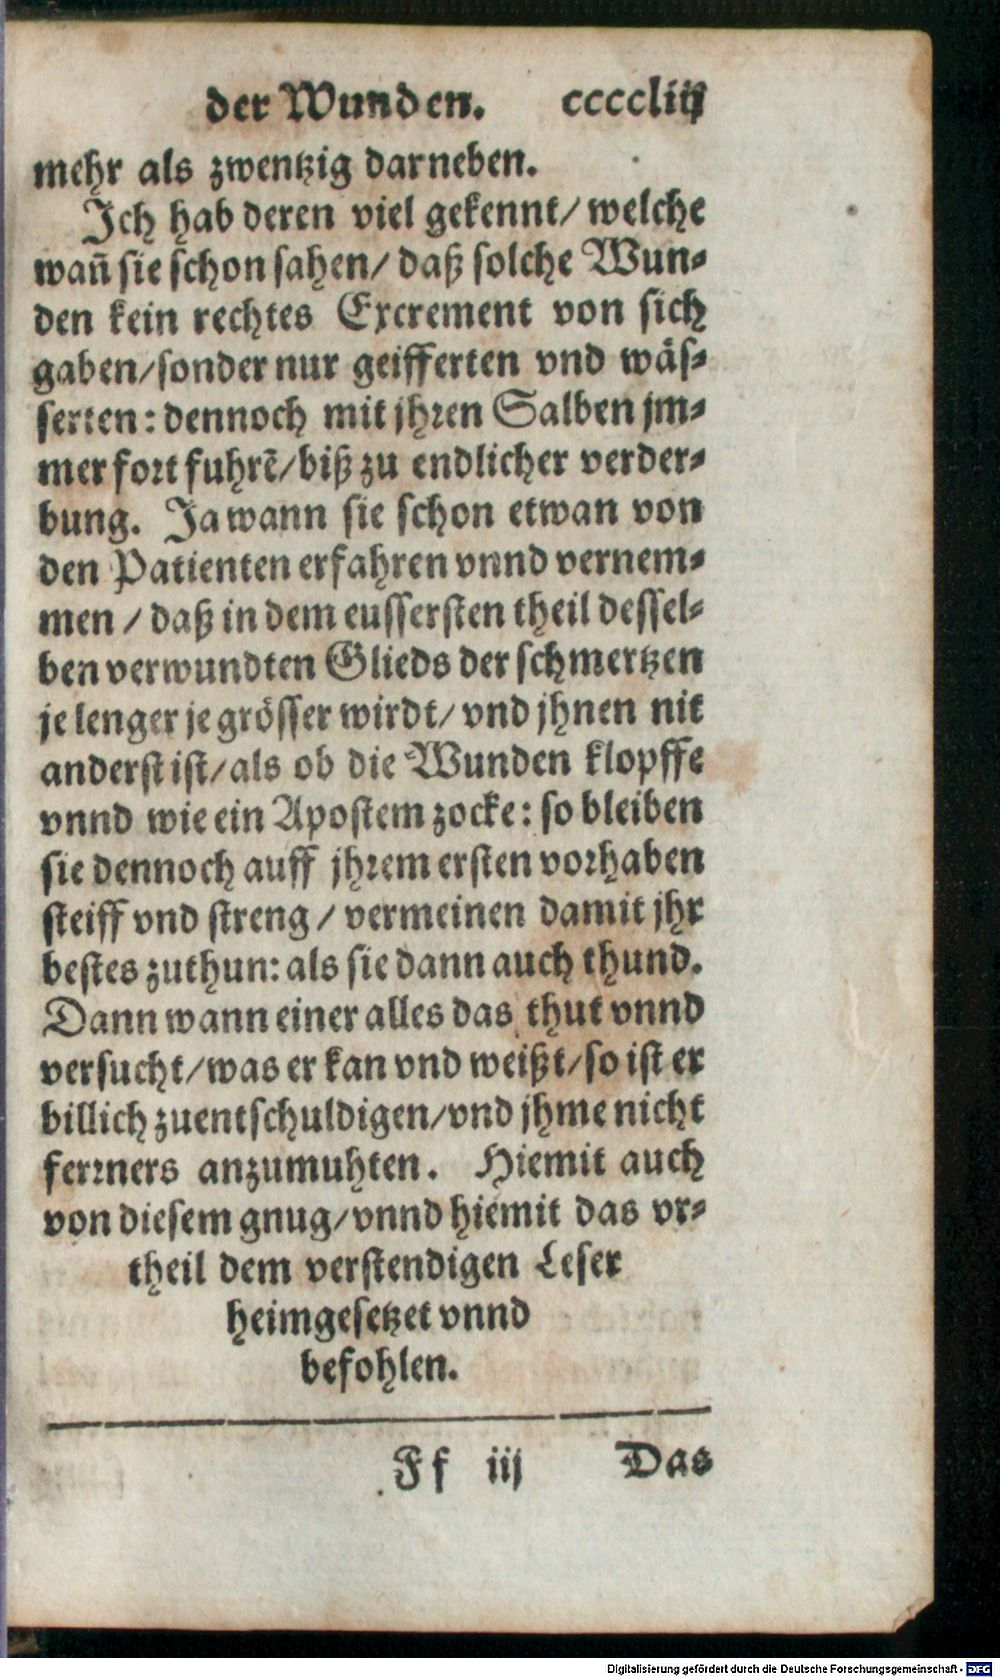 der Wunden. ccccliij
mehr als zwentzig darneben.
Ich hab deren viel gekennt/ welche
wañ sie schon sahen/ daß solche Wun-
den kein rechtes Excrement von sich
gaben/sonder nur geifferten vnd wäs-
serten: dennoch mit jhren Salben jm-
mer fort fuhrẽ/biß zu endlicher verder-
bung. Ja wann sie schon etwan von
den Patienten erfahren vnnd vernem-
men / daß in dem eussersten theil dessel-
ben verwundten Glieds der schmertzen
je lenger je grösser wirdt/ vnd jhnen nit
anderst ist/als ob die Wunden klopffe
vnnd wie ein Apostem zocke: so bleiben
sie dennoch auff jhrem ersten vorhaben
steiff vnd streng / vermeinen damit jhr
bestes zuthun: als sie dann auch thund.
Dann wann einer alles das thut vnnd
versucht/was er kan vnd weißt/so ist er
billich zuentschuldigen/vnd jhme nicht
ferrners anzumuhten. Hiemit auch
von diesem gnug/vnnd hiemit das vr-
theil dem verstendigen Leser
heimgesetzet vnnd
befohlen.
Ff iij Das
Digitalisierung gefördert durch die Deutsche Forschungsgemeinschaft - DFG